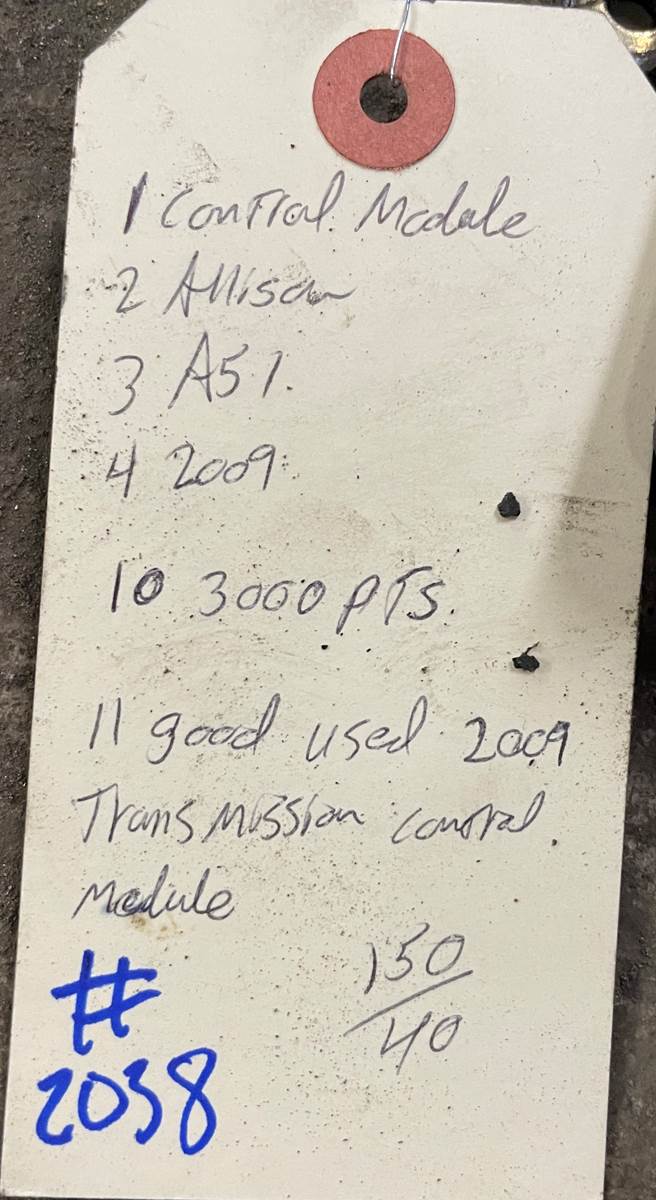 1 Control Module
2 Allison
3 A51.
4 2009
10 3000 PTS.
11 good used 2009
Transmission control
Module
150
40
#
2038